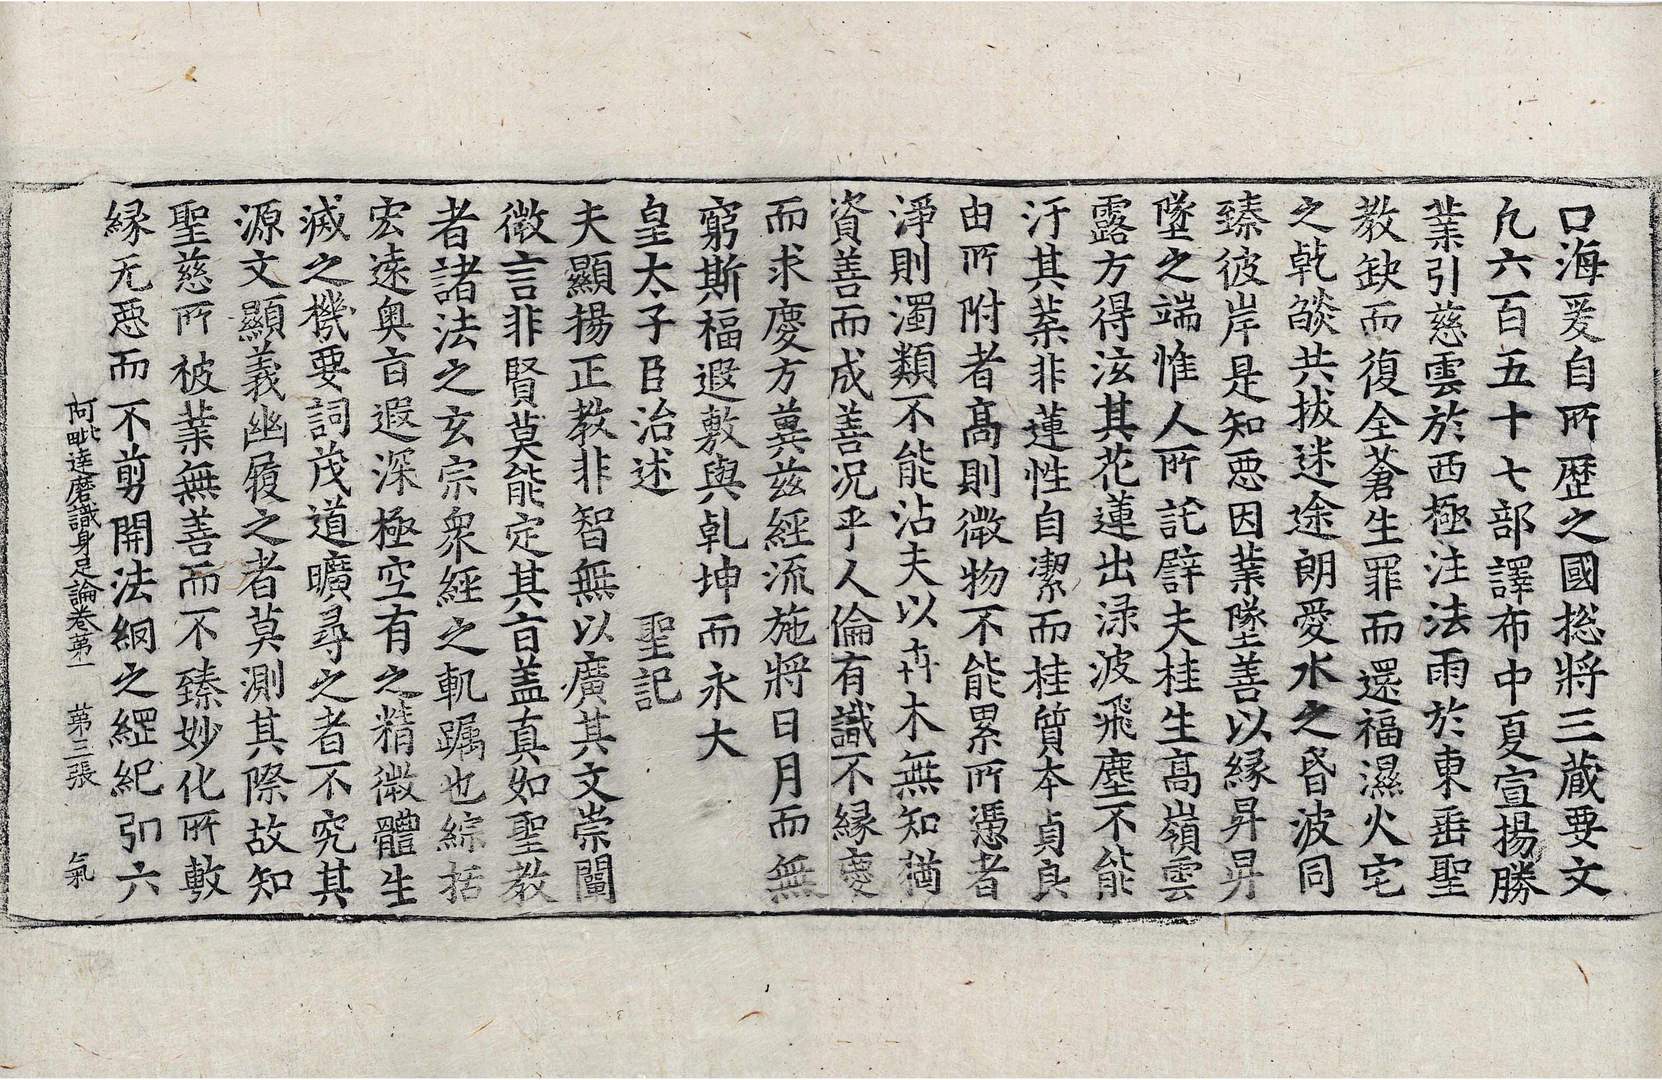 口海爰自所歷之國揔將三藏要文
凡六百五十七部譯布中夏宣揚勝
業引慈雲於西極注法雨於東垂聖
教缺而復全蒼生罪而還福濕火宅
之乹燄共拔迷途朗愛水之昏波同
臻彼岸是知惡因業墜善以緣昇昇
墜之端惟人所託譬夫桂生髙嶺雲
露方得泫其花蓮出渌波飛塵不能
汙其葉非蓮性自潔而桂質本貞良
由所附者髙則微物不能累所憑者
淨則濁類不能沾夫以卉木無知猶
資善而成善況乎人倫有識不緣慶
而求慶方冀兹經流施將日月而無
窮斯福遐敷與乹坤而永大
皇太子臣治述　聖記
夫顯揚正教非智無以廣其文崇闡
微言非賢莫能定其旨盖真如聖教
者諸法之玄宗衆經之軌躅也綜括
宏遠奥旨遐深極空有之精微體生
滅之機要詞茂道曠尋之者不究其
源文顯義幽履之者莫測其際故知
聖慈所被業無善而不臻妙化所敷
緣无惡而不剪開法網之綱紀弘六
阿毗達磨識身足論卷第一　第三張　氣